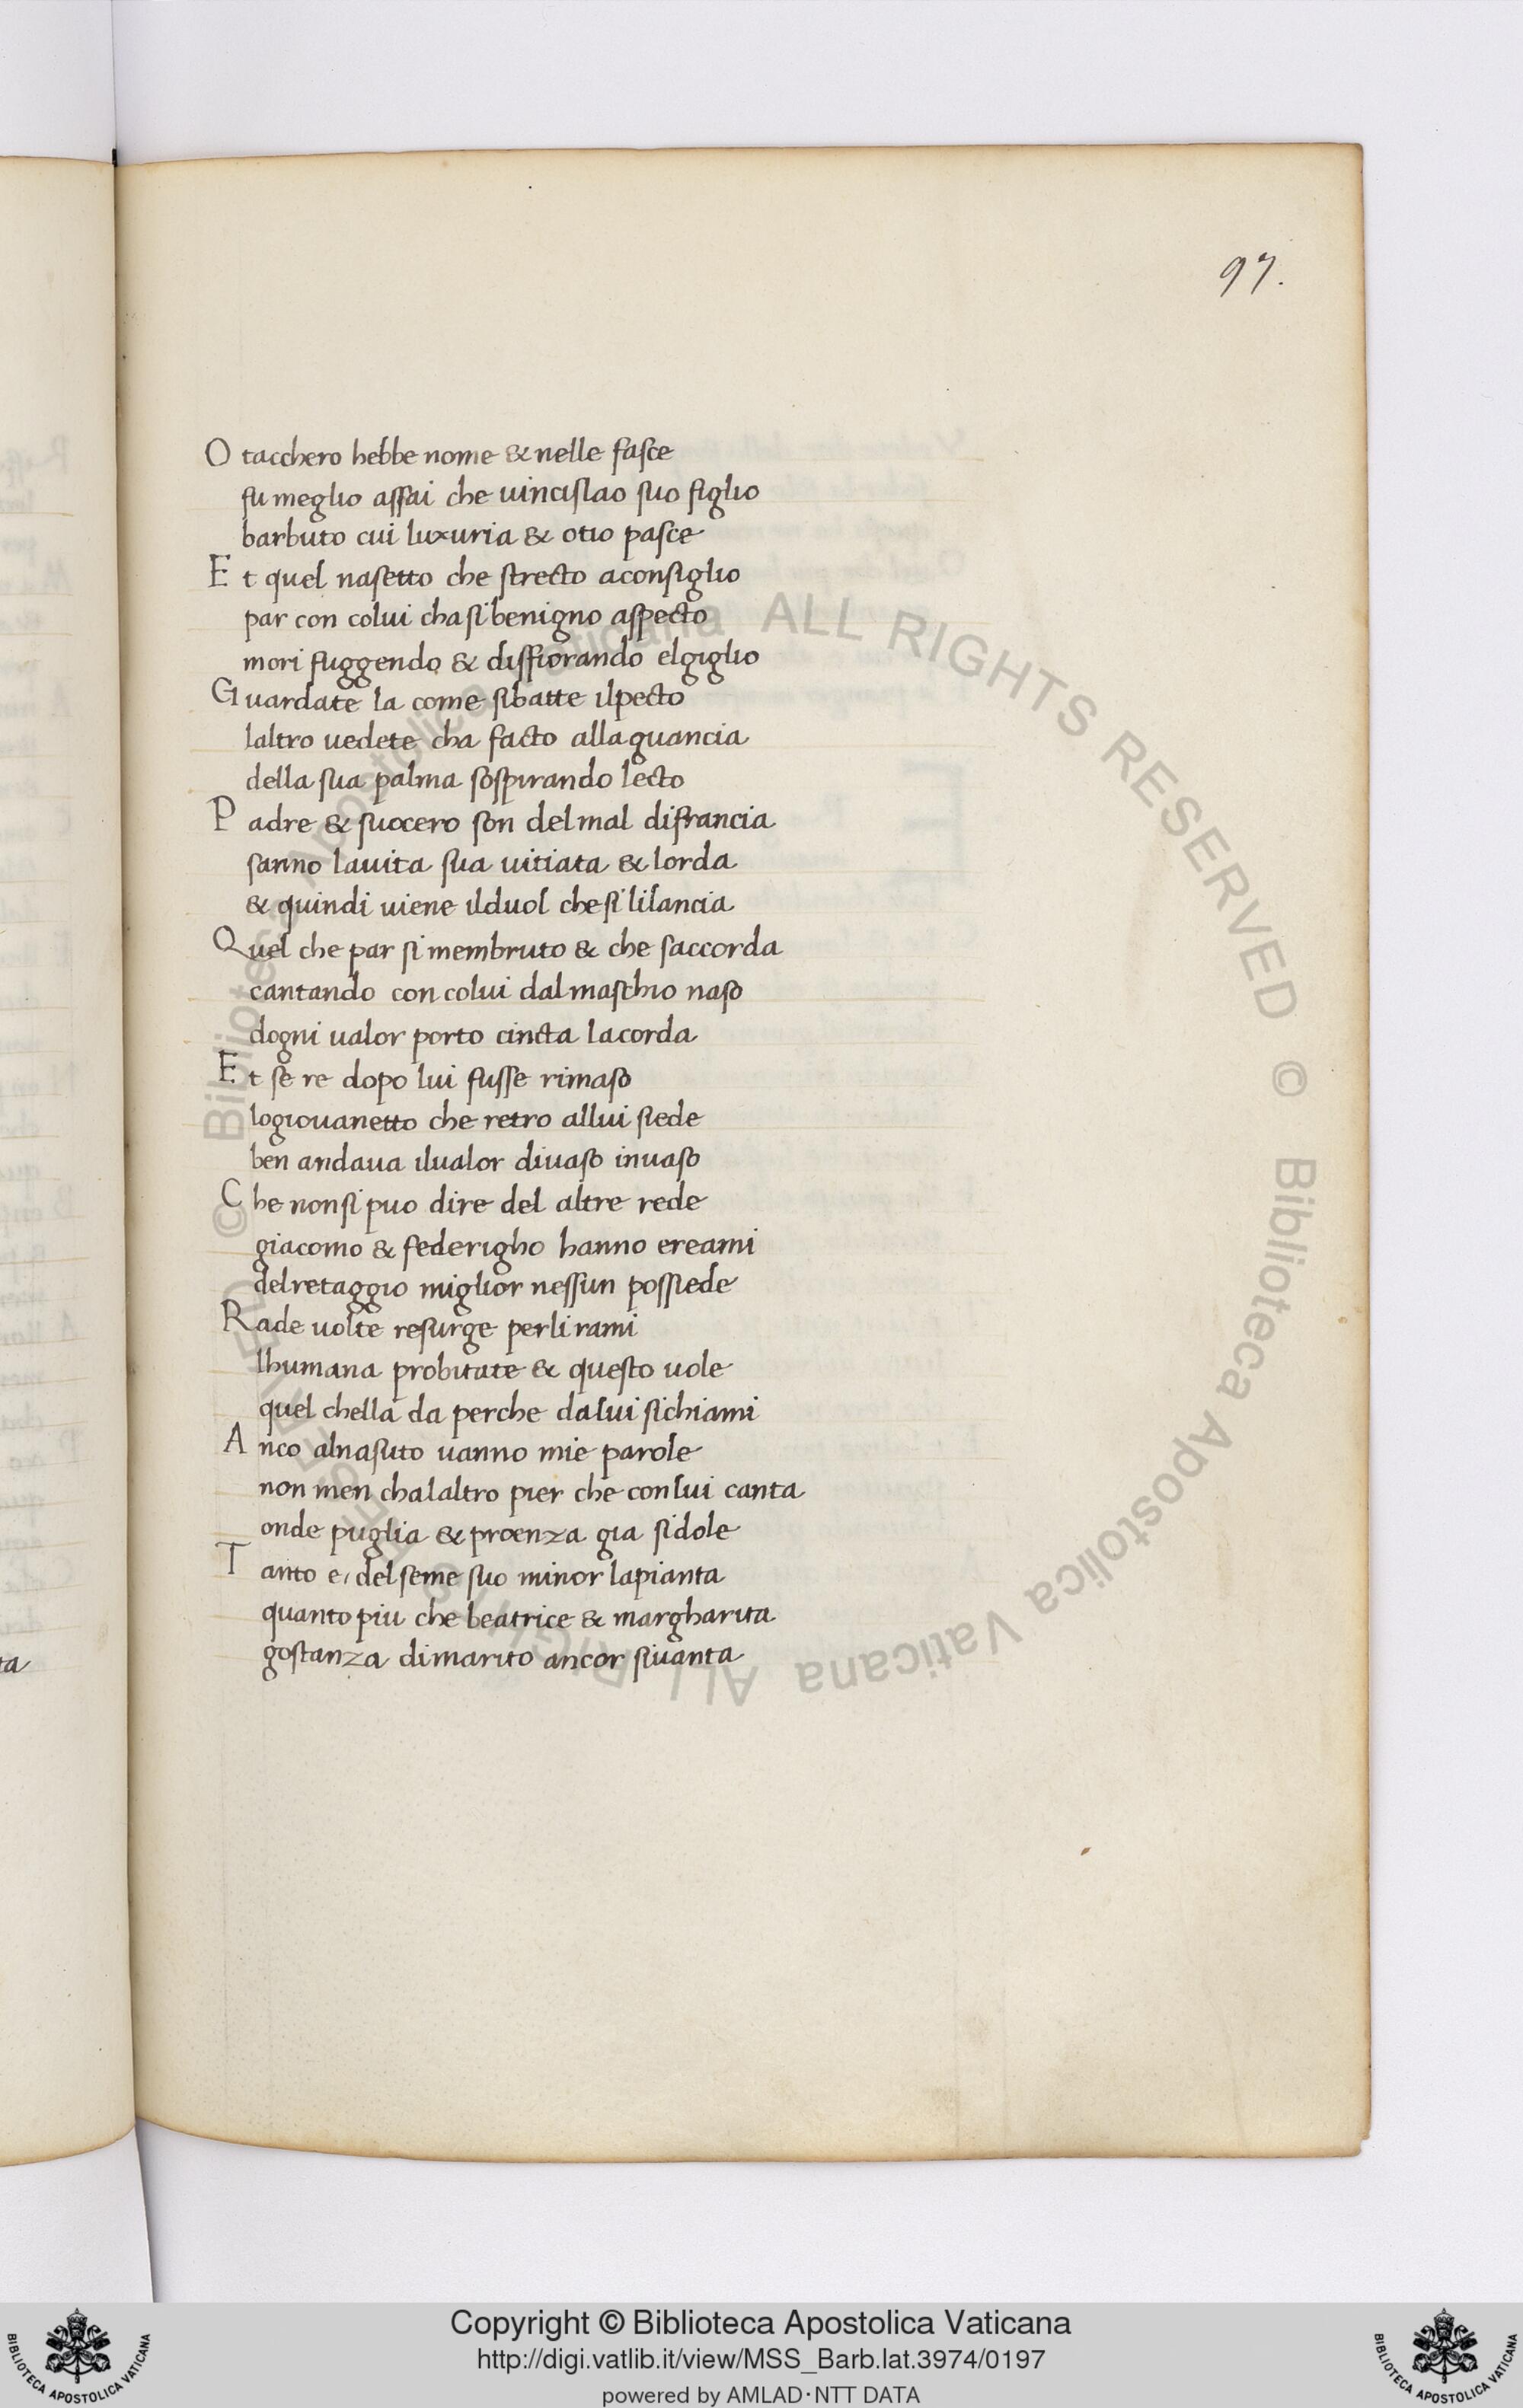 97.
O tacchero hebbe nome & nelle fasce
fu meglio assai che uincislao suo figlio
barbuto cui luxuria & otio pasce
E t quel nasetto che strecto aconsiglio
par con colui cha si benigno aspecto
mori fuggendo & disfiorando elgiglio
G uardate la come sibatte ilpecto
laltro uedete cha facto alla guancia
della sua palma sospirando lecto
P adre & suocero son delmal difrancia
sanno lauita sua uitiata & lorda
& quindi uiene ilduol che si lilancia
Q uel che par si membruto & che saccorda
cantando con colui dal maschio naso
dogni ualor porto cincta lacorda
E t se re dopo lui fusse rimaso
logiouanetto che retro allui siede
ben andaua ilualor diuaso inuaso
C he nonsi puo dire del altre rede
giacomo & federigho hanno ereami
delretaggio miglior nessun possiede
R ade uolte resurge perli rami
lhumana probitate & questo uole
quel chella da perche dalui sichiami
A nco alnasuto uanno mie parole
non men chalaltro pier che conlui canta
onde puglia & proenza gia sidole
T anto e, delseme suo minor lapianta
quanto piu che beatrice & margharita
gostanza dimarito ancor siuanta
ta
© Biblioteca Apostolica Vaticana ALL RIGHTS RESERVED © Biblioteca Apostolica Vaticana ALL RIGHTS RESERVED
Copyright © Biblioteca Apostolica Vaticana
http://digi.vatlib.it/view/MSS_Barb.lat.3974/0197
powered by AMLAD·NTT DATA
BIBLIOTECA APOSTOLICA VATICANA
BIBLIOTECA APOSTOLICA VATICANA